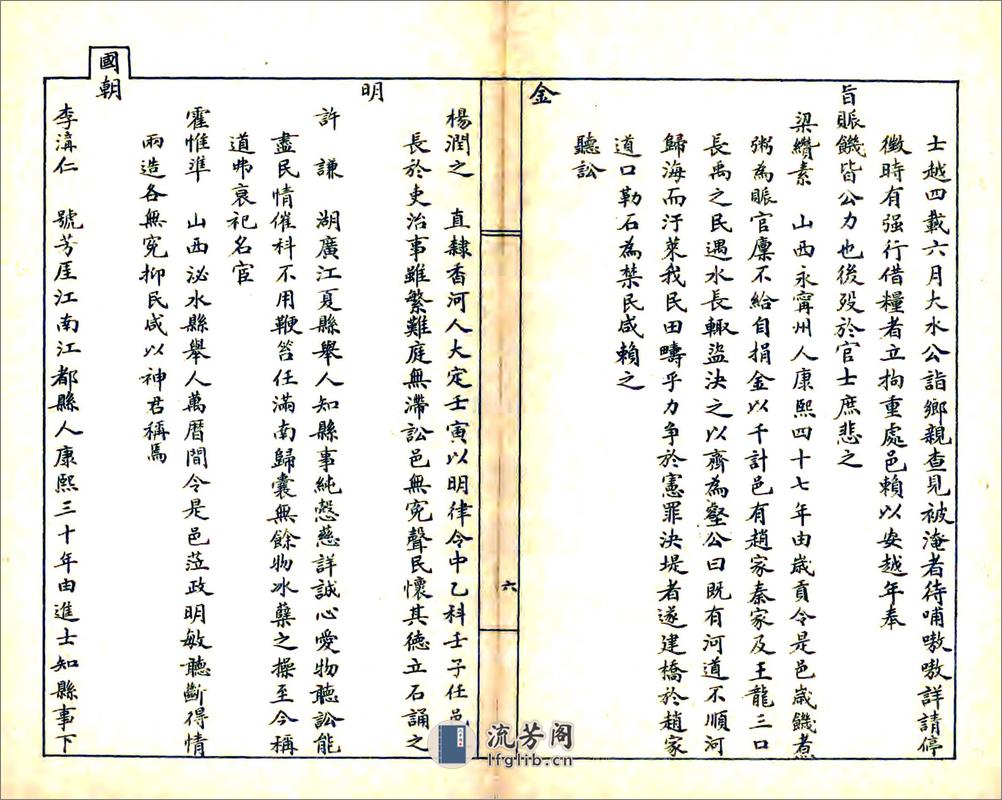 士越四載六月大水公詣鄉親查見被淹者待哺嗷嗷詳請停
徵時有强行借糧者立拘重處邑賴以安越年奉
旨賑饑皆公力也後歿於官士庶悲之
梁纘素 山西永寧州人康熙四十七年由歲貢令是邑歲饑煮
粥為賑官廩不給自捐金以千計邑有趙家秦家及王龍三口
長禹之民遇水長輒盜決之以齊為壑公曰既有河道不順河
歸海而汙萊我民田疇乎力爭於憲罪決堤者遂建橋於趙家
道口勒石為禁民咸賴之
聽訟
金
楊潤之 直隸香河人大定壬寅以明律令中乙科壬子任邑
長於吏治事雖繁難庭無滯訟邑無冤聲民懷其德立石誦之
明
許 謙 湖廣江夏縣舉人知縣事純慤慈詳誠心愛物聽訟能
盡民情催科不用鞭笞任滿南歸囊無餘物冰蘗之操至今稱
道弗衰祀名宦
霍惟準 山西泌水縣舉人萬曆間令是邑蒞政明敏聽斷得情
兩造各無冤抑民咸以神君稱焉
國朝
李濤仁 號芳厓江南江都縣人康熙三十年由進士知縣事下
六
流芳阁
lfglib.cn